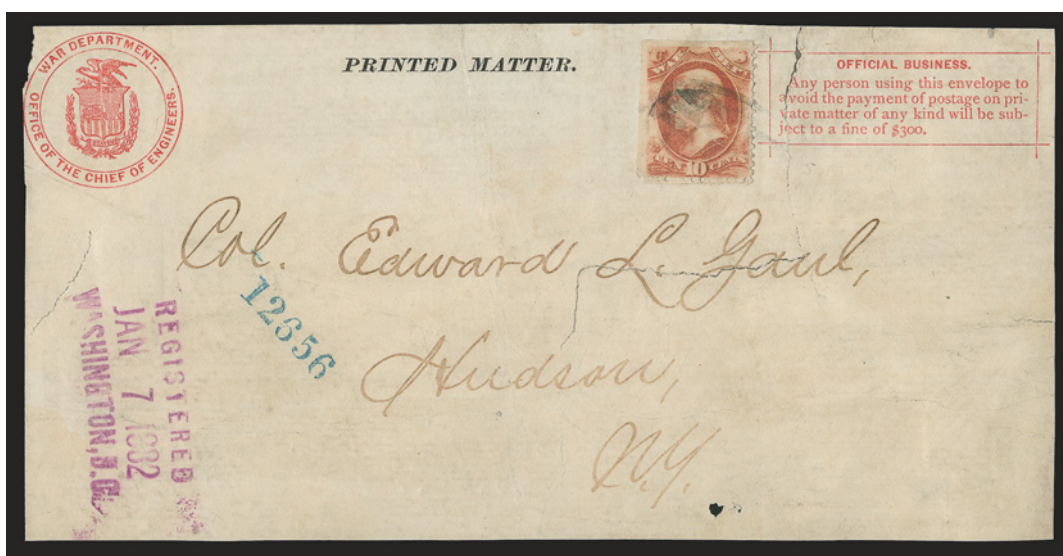 WAR DEPARTMENT.
OFFICE OF THE CHIEF OF ENGINEERS.
PRINTED MATTER.
WAR DEPT.
TEN 10 CENTS
OFFICIAL BUSINESS.
Any person using this envelope to
avoid the payment of postage on pri-
vate matter of any kind will be sub-
ject to a fine of $300.
Col. Edward L. Gaul,
12656
Hudson,
N.Y.
REGISTERED
JAN 7 1882
WASHINGTON, D.C.